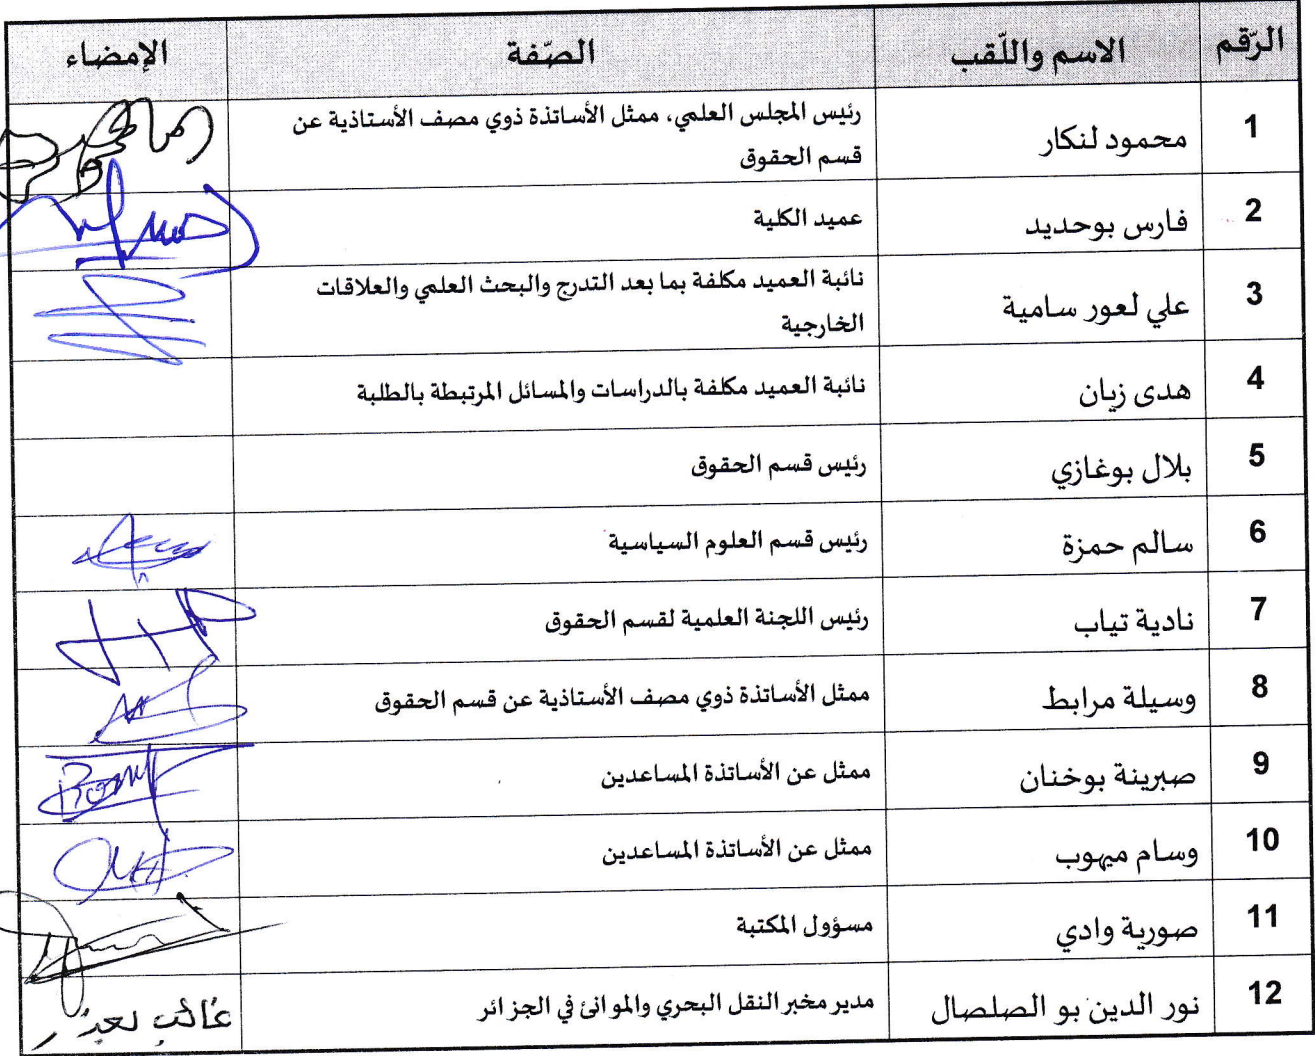 الرّقم الاسم واللّقب الصّفة الإمضاء
1 محمود لنكار رئيس المجلس العلمي، ممثل الأساتذة ذوي مصف الأستاذية عن
قسم الحقوق
2 فارس بوحديد عميد الكلية
3 علي لعور سامية نائبة العميد مكلفة بما بعد التدرج والبحث العلمي والعلاقات
الخارجية
4 هدى زيان نائبة العميد مكلفة بالدراسات والمسائل المرتبطة بالطلبة
5 بلال بوغازي رئيس قسم الحقوق
6 سالم حمزة رئيس قسم العلوم السياسية
7 نادية تياب رئيس اللجنة العلمية لقسم الحقوق
8 وسيلة مرابط ممثل الأساتذة ذوي مصف الأستاذية عن قسم الحقوق
9 صبرينة بوخنان ممثل عن الأساتذة المساعدين
10 وسام ميهوب ممثل عن الأساتذة المساعدين
11 صورية وادي مسؤول المكتبة
12 نور الدين بو الصلصال مدير مخبر النقل البحري والموانئ في الجزائر غائب بعذر